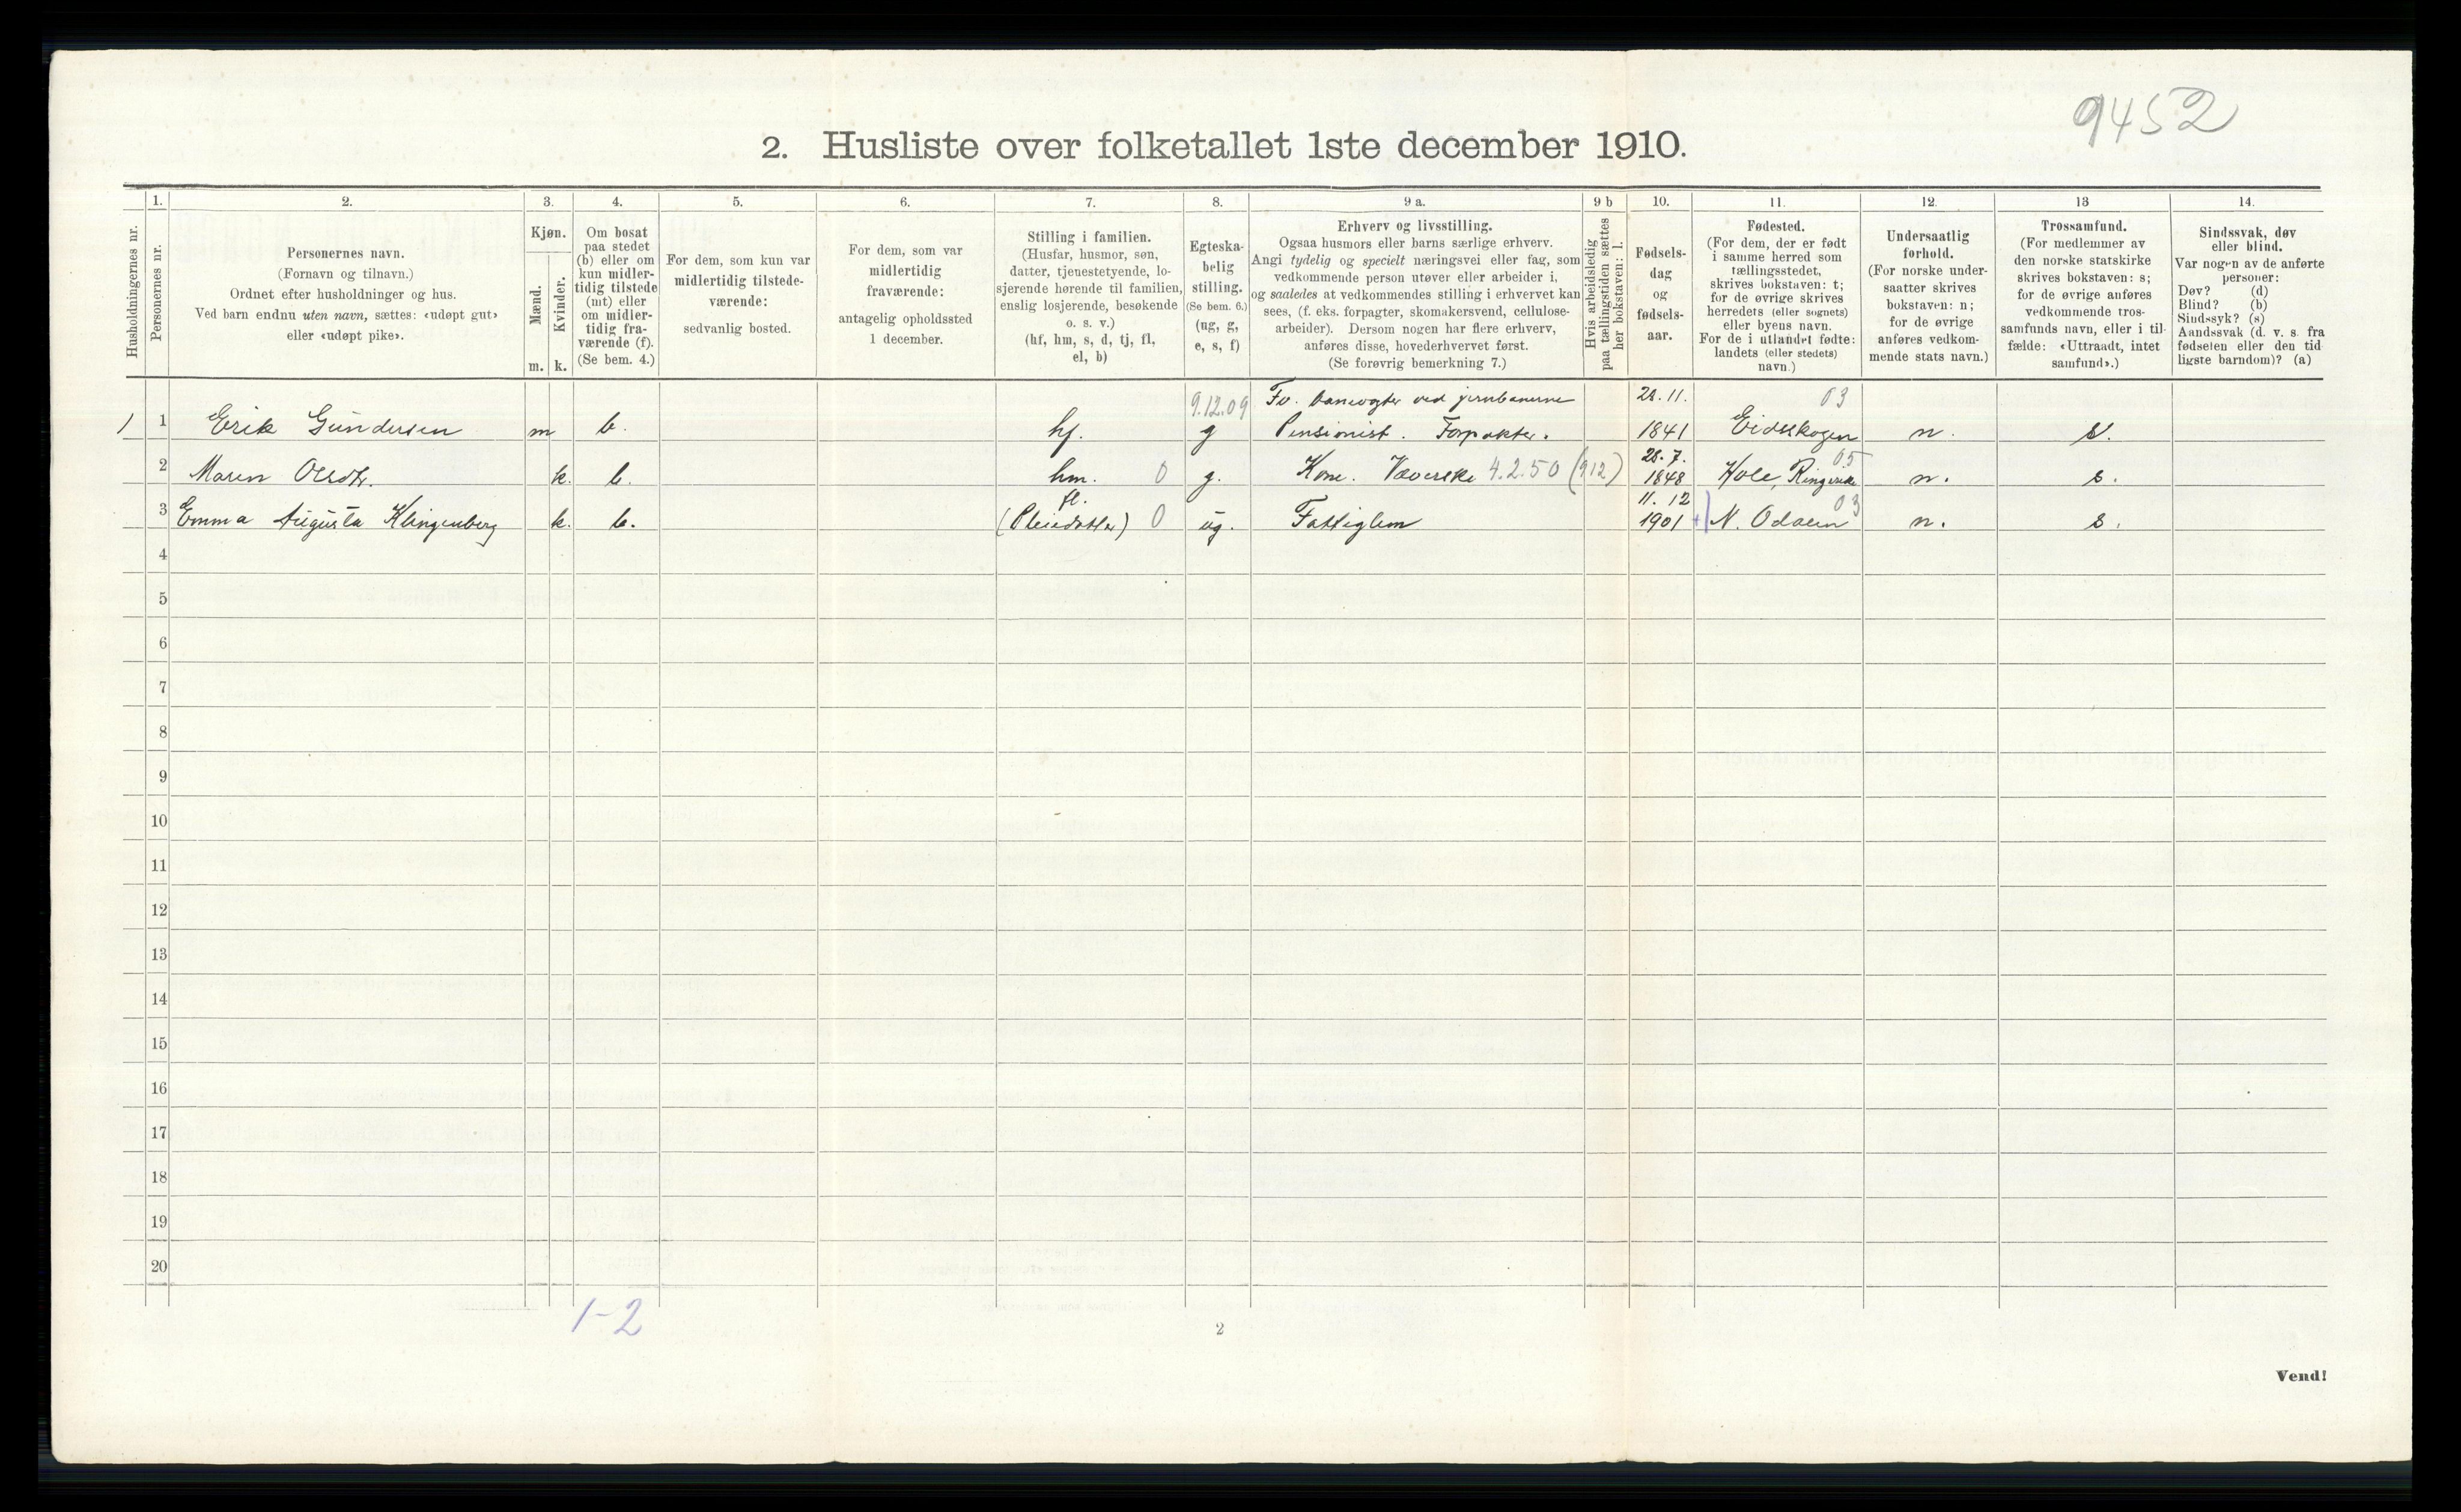 9452
2. Husliste over folketallet 1ste december 1910.
Husholdningernes nr.
1.
Personernes nr.
2.
Personernes navn.
(Fornavn og tilnavn.)
Ordnet efter husholdninger og hus.
Ved barn endnu uten navn, sættes: «udøpt gut»
eller «udøpt pike».
3.
Kjøn.
Mænd.
Kvinder.
m. k.
4.
Om bosat
paa stedet
(b) eller om
kun midler-
tidig tilstede
(mt) eller
om midler-
tidig fra-
værende (f).
(Se bem. 4.)
5.
For dem, som kun var
midlertidig tilstede-
værende:
sedvanlig bosted.
6.
For dem, som var
midlertidig
fraværende:
antagelig opholdssted
1 december.
7.
Stilling i familien.
(Husfar, husmor, søn,
datter, tjenestetyende, lo-
sjerende hørende til familien,
enslig losjerende, besøkende
o. s. v.)
(hf, hm, s, d, tj, fl,
el, b)
8.
Egteska-
belig
stilling.
(Se bem. 6.)
(ug, g,
e, s, f)
9 a.
Erhverv og livsstilling.
Ogsaa husmors eller barns særlige erhverv.
Angi tydelig og specielt næringsvei eller fag, som
vedkommende person utøver eller arbeider i,
og saaledes at vedkommendes stilling i erhvervet kan
sees, (f. eks. forpagter, skomakersvend, cellulose-
arbeider). Dersom nogen har flere erhverv,
anføres disse, hovederhvervet først.
(Se forøvrig bemerkning 7.)
9 b
Hvis arbeidsledig
paa tællingstiden sættes
her bokstaven: l.
10.
Fødsels-
dag
og
fødsels-
aar.
11.
Fødested.
(For dem, der er født
i samme herred som
tællingsstedet,
skrives bokstaven: t;
for de øvrige skrives
herredets (eller sognets)
eller byens navn.
For de i utlandet fødte:
landets (eller stedets)
navn.)
12.
Undersaatlig
forhold.
(For norske under-
saatter skrives
bokstaven: n;
for de øvrige
anføres vedkom-
mende stats navn.)
13
Trossamfund.
(For medlemmer av
den norske statskirke
skrives bokstaven: s;
for de øvrige anføres
vedkommende tros-
samfunds navn, eller i til-
fælde: «Uttraadt, intet
samfund».)
14.
Sindssvak, døv
eller blind.
Var nogen av de anførte
personer:
Døv? (d)
Blind? (b)
Sindssyk? (s)
Aandssvak (d. v. s. fra
fødselen eller den tid-
ligste barndom)? (a)
9.12.09 Fv. banevogter ved jernbanerne 28.11. 03
1 1 Erik Gundersen m b. hf. g Pensionist. Forpakter. 1841 Eidsskogen n. s.
28.7. 05
2 Maren Olsdtr. k. b. hm. 0 g. Kone. Væverske 4.2.50 (912) 1848 Hole, Ringerike n. s.
fl. 11.12 03
3 Emma Augusta Klingenberg k. b. (Pleiedatter) 0 ug. Fattiglem 1901 + N. Odalen n. s.
4
5
6
7
8
9
10
11
12
13
14
15
16
17
18
19
20
1-2
2
Vend!